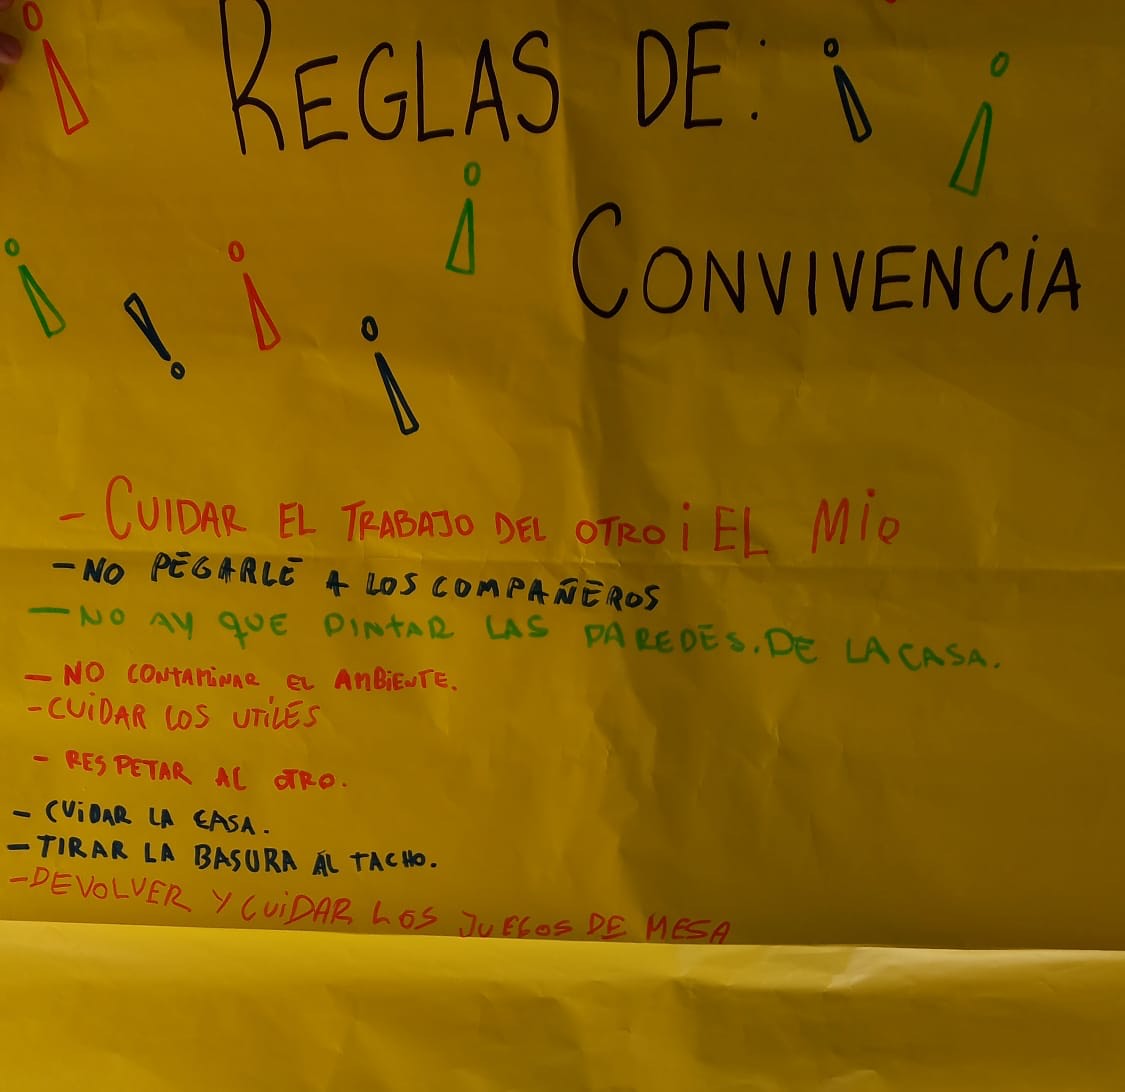 REGLAS DE:
CONVIVENCIA
- CUIDAR EL TRABAJO DEL OTRO i EL MIO
- NO PEGARLE A LOS COMPAÑEROS
- NO AY QUE PINTAR LAS PAREDES. DE LA CASA.
- NO CONTAMINAR EL AMBIENTE.
- CUIDAR LOS UTILES
- RESPETAR AL OTRO.
- CUIDAR LA CASA.
- TIRAR LA BASURA AL TACHO.
- DEVOLVER Y CUIDAR LOS JUEGOS DE MESA